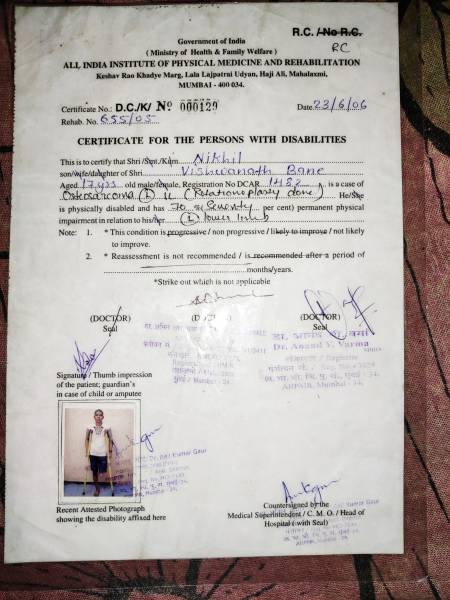 Government of India
R.C. / No R.C.
RC
( Ministry of Health & Family Welfare )
ALL INDIA INSTITUTE OF PHYSICAL MEDICINE AND REHABILITATION
Keshav Rao Khadye Marg, Lala Lajpatrai Udyan, Haji Ali, Mahalaxmi,
MUMBAI - 400 034.
Certificate No.: D.C./K/ No 000129 Date 23/6/06
Rehab. No. 655/05
CERTIFICATE FOR THE PERSONS WITH DISABILITIES
This is to certify that Shri/Smt./Kum. Nikhil
son/wife/daughter of Shri Vishwanath Bane
Aged 17 yrs old male/female, Registration No DCAR 1482 is a case of
Osteosarcoma (Rotationoplasty done) He/She
is physically disabled and has 70 % (Seventy per cent) permanent physical
impairment in relation to his/her lower limb
Note: 1. * This condition is progressive / non progressive / likely to improve / not likely
to improve.
2. * Reassessment is not recommended / is recommended after a period of
months/years.
*Strike out which is not applicable
(DOCTOR) (DOCTOR) (DOCTOR)
Seal Seal
Dr. Anand V. Varma
Signature / Thumb impression
of the patient; guardian's
in case of child or amputee
Recent Attested Photograph
showing the disability affixed here
Countersigned by the
Medical Superintendent / C. M. O. / Head of
Hospital ( with Seal)